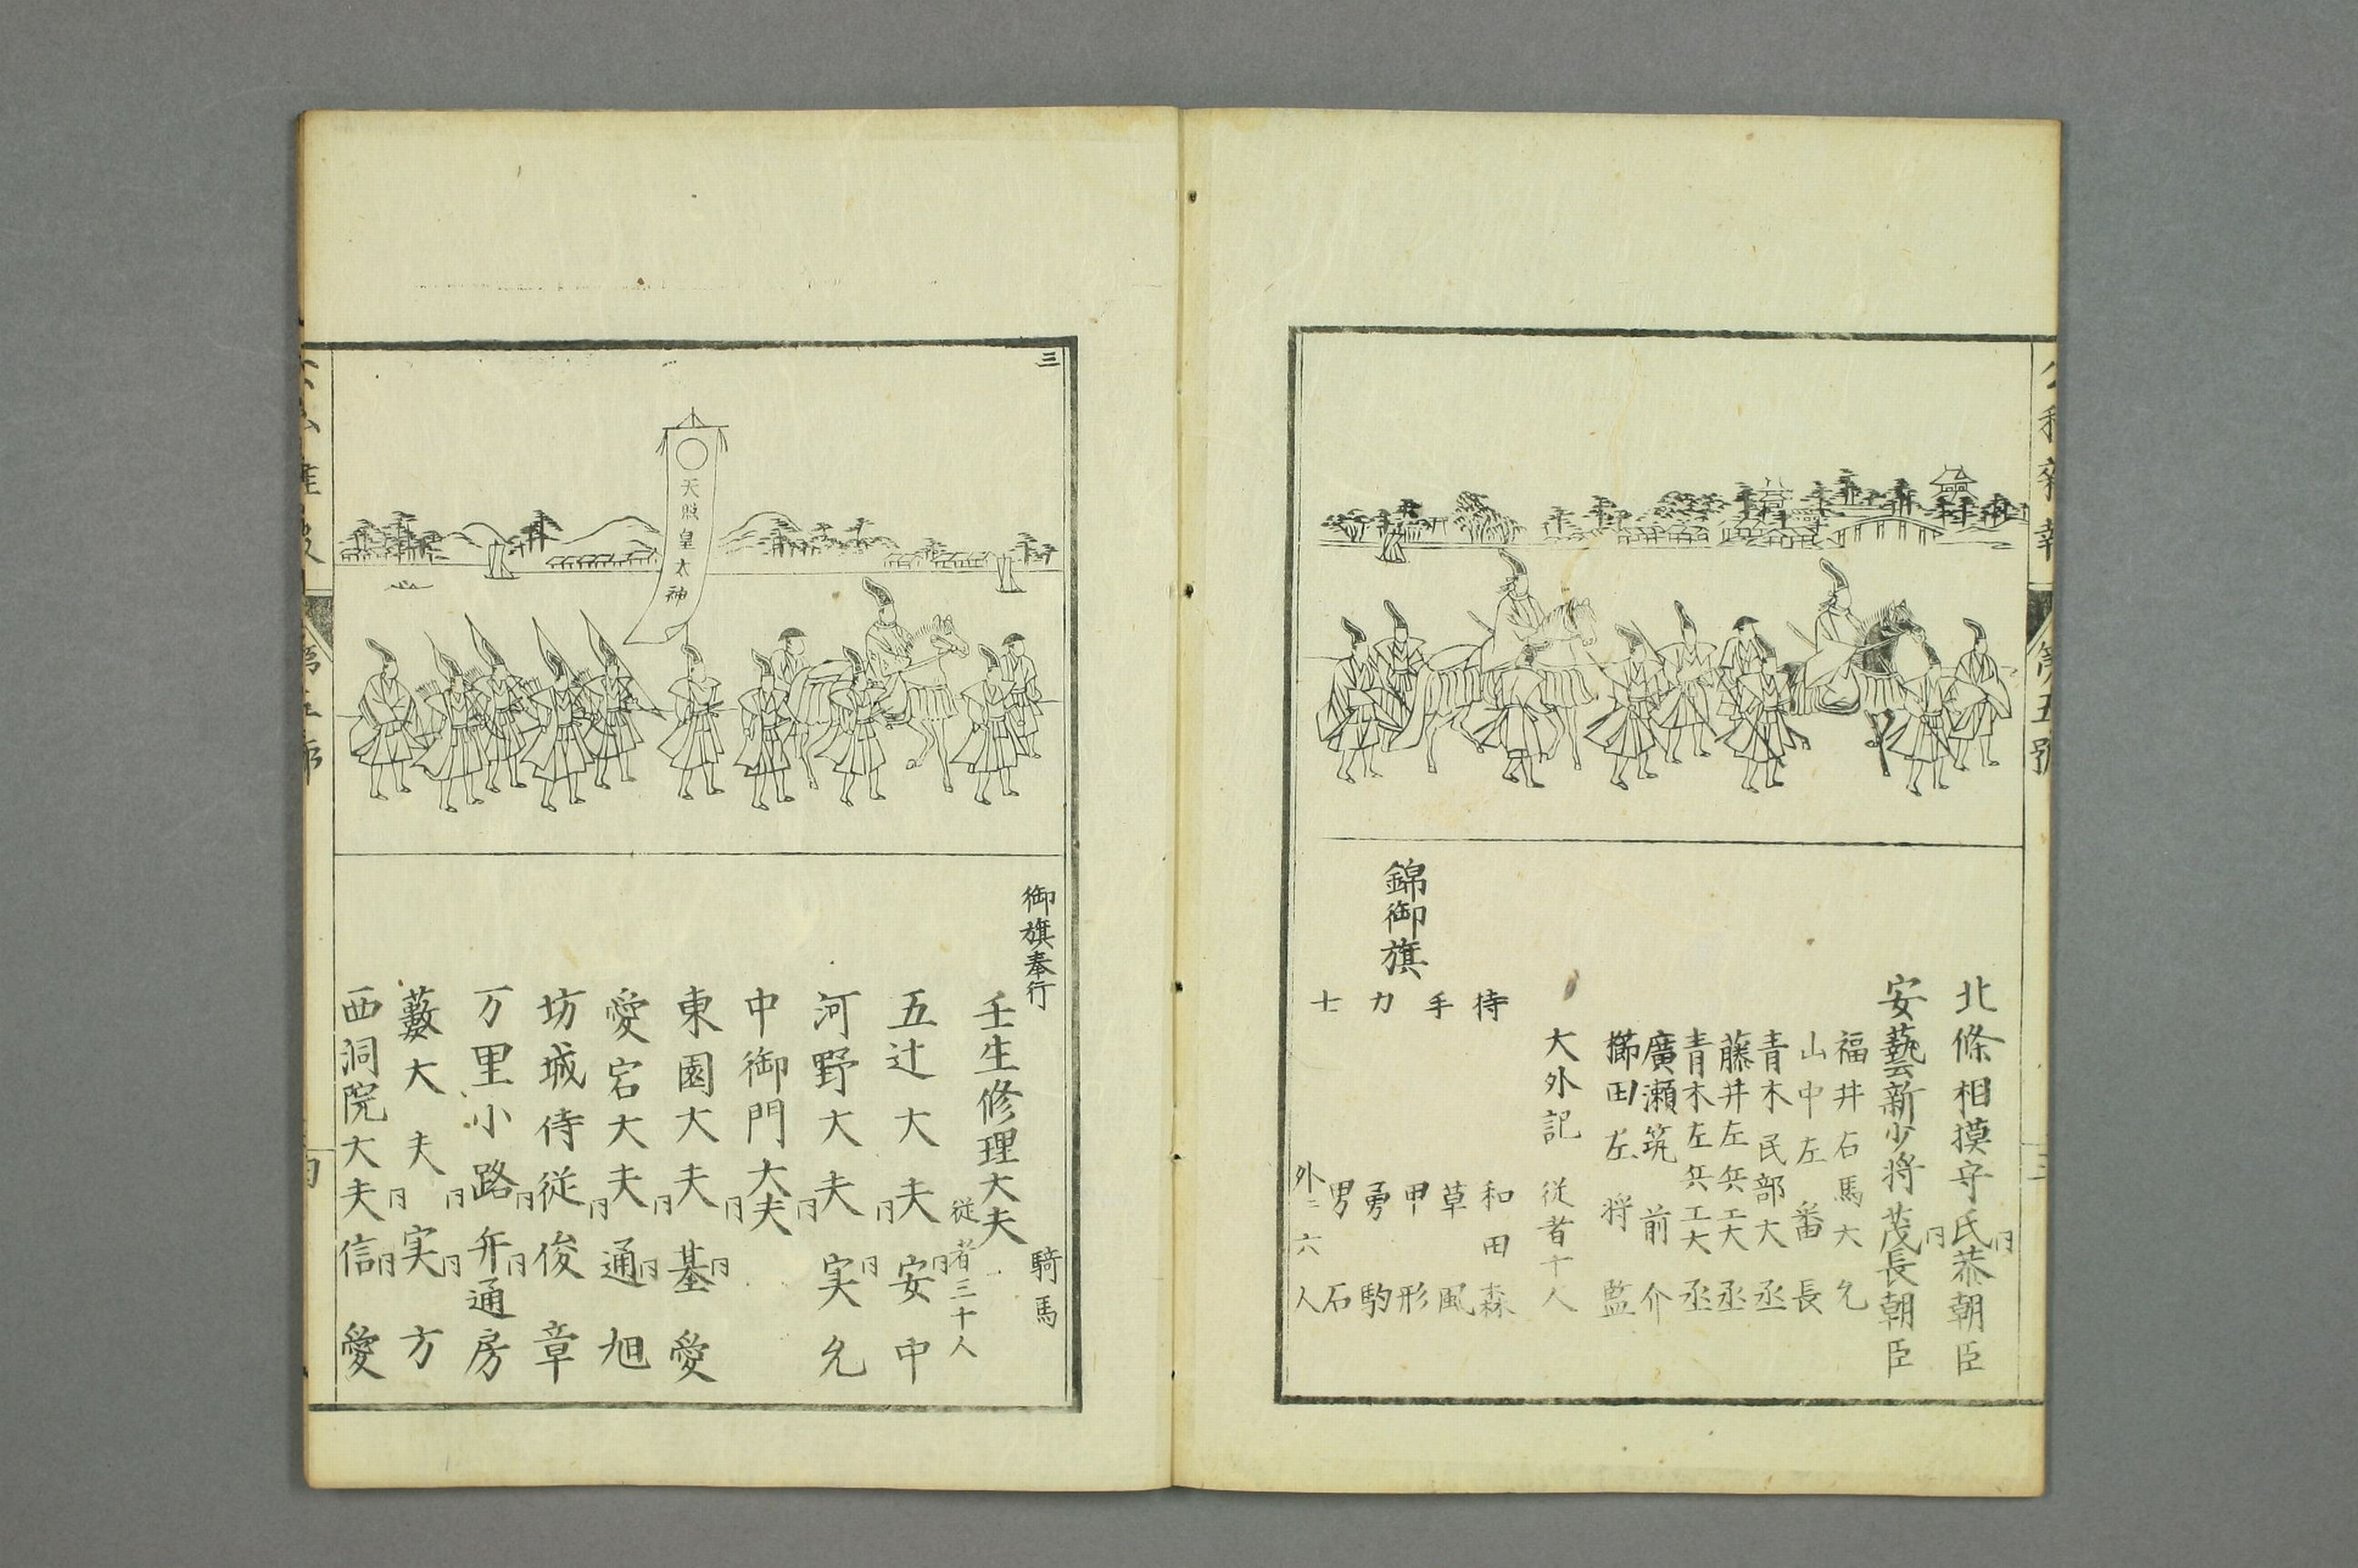 北條相摸守氏恭朝臣
同
安藝新少将茂長朝臣
同
福井右馬大允
山中左番長
青木民部大丞
藤井左兵工大丞
青木左兵工大丞
廣瀬筑前介
櫛田左将監
大外記 従者十人
錦御旗
待手力士
和田森
草風
甲形
勇駒
男石
外ニ六人
三
天照皇太神
御旗奉行
騎馬
壬生修理大夫
従者三十人
五辻大夫安中
同 同
河野大夫実允
同
中御門大夫
同 同
東園大夫基愛
同 同
愛宕大夫通旭
同
坊城侍従俊章
同 同
万里小路弁通房
同 同
藪大夫実方
同 同
西洞院大夫信愛